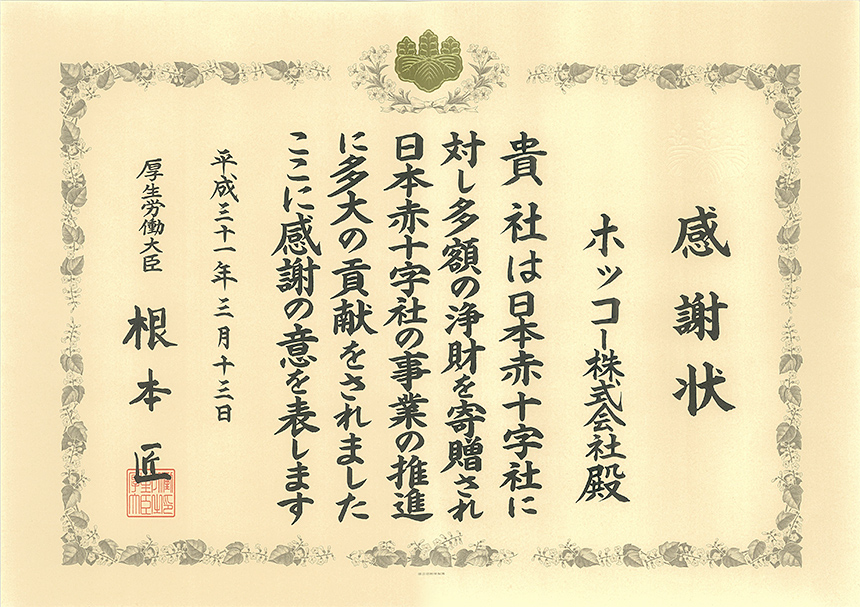 感謝状
ホッコー株式会社殿
貴社は日本赤十字社に
対し多額の浄財を寄贈され
日本赤十字社の事業の推進
に多大の貢献をされました
ここに感謝の意を表します
平成三十一年三月十三日
厚生労働大臣
根本匠